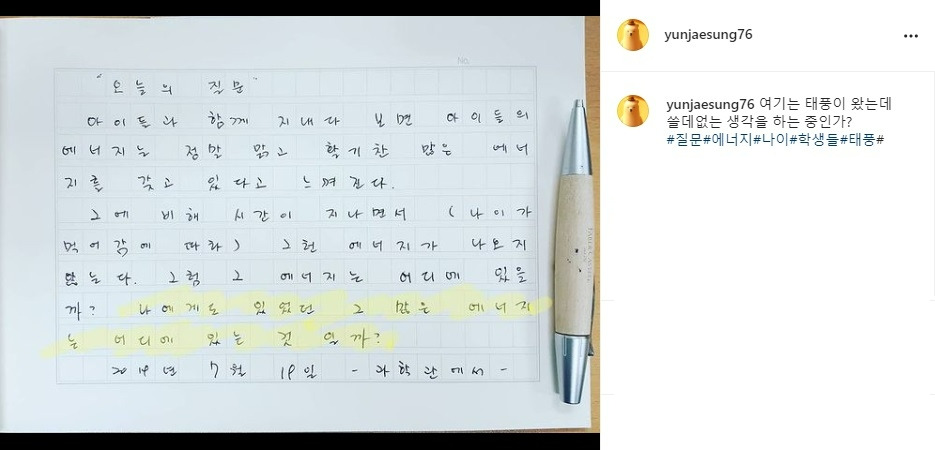 No.
"오늘의 질문"
아이들과 함께 지내다 보면 아이들의
에너지는 정말 맑고 활기찬 많은 에너
지를 갖고 있다고 느껴진다.
그에 비해 시간이 지나면서 (나이가
먹어감에 따라) 그런 에너지가 나오지
않는다. 그럼 그 에너지는 어디에 있을
까? 나에게도 있었던 그 많은 에너지
는 어디에 있는 것 일까?
2019년 7월 19일 - 과학관에서 -
yunjaesung76
yunjaesung76 여기는 태풍이 왔는데
쓸데없는 생각을 하는 중인가?
#질문#에너지#나이#학생들#태풍#